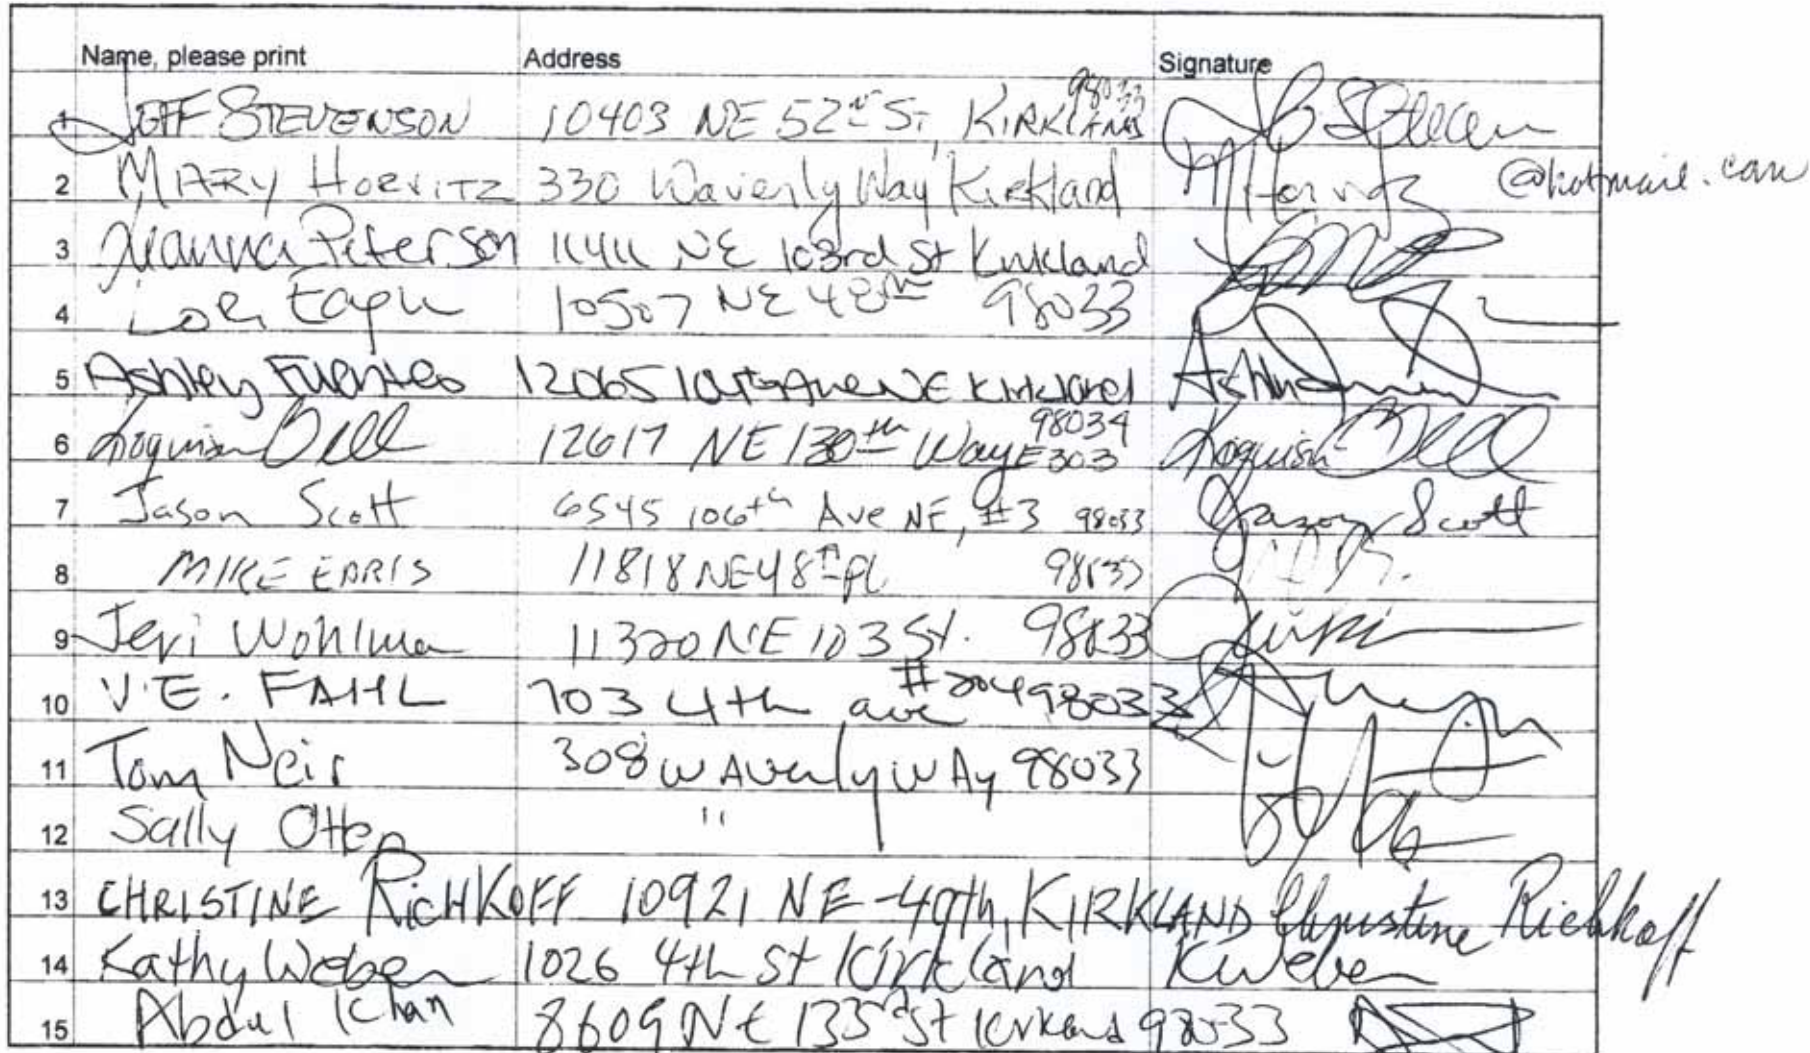 Name, please print Address Signature
1 JEFF STEVENSON 10403 NE 52nd ST, KIRKLAND 98033
2 MARY HORVITZ 330 Waverly Way Kirkland MHorvitz @hotmail.com
3 Peterson NE 103rd St Kirkland
4 Lori 10507 NE 48th 98033
5 Ashley Fuentes 12065 Ave NE Kirkland
6 Bell 12617 NE 130th Way E303 98034 Bell
7 Jason Scott 6545 106th Ave NE, #3 98033 Jason Scott
8 MIKE 11818 NE 48th PL 98033
9 Jeri 11320 NE 103 St. 98033
10 V.E. FAHL 703 4th ave #204 98033
11 Tom Neir 308 WAverly WAy 98033
12 Sally Otten "
13 CHRISTINE RICHKOFF 10921 NE -49th, KIRKLAND Christine Richkoff
14 Kathy Weber 1026 4th St Kirkland KWeber
15 Abdul Khan 8609 NE 133rd St Kirkland 98033